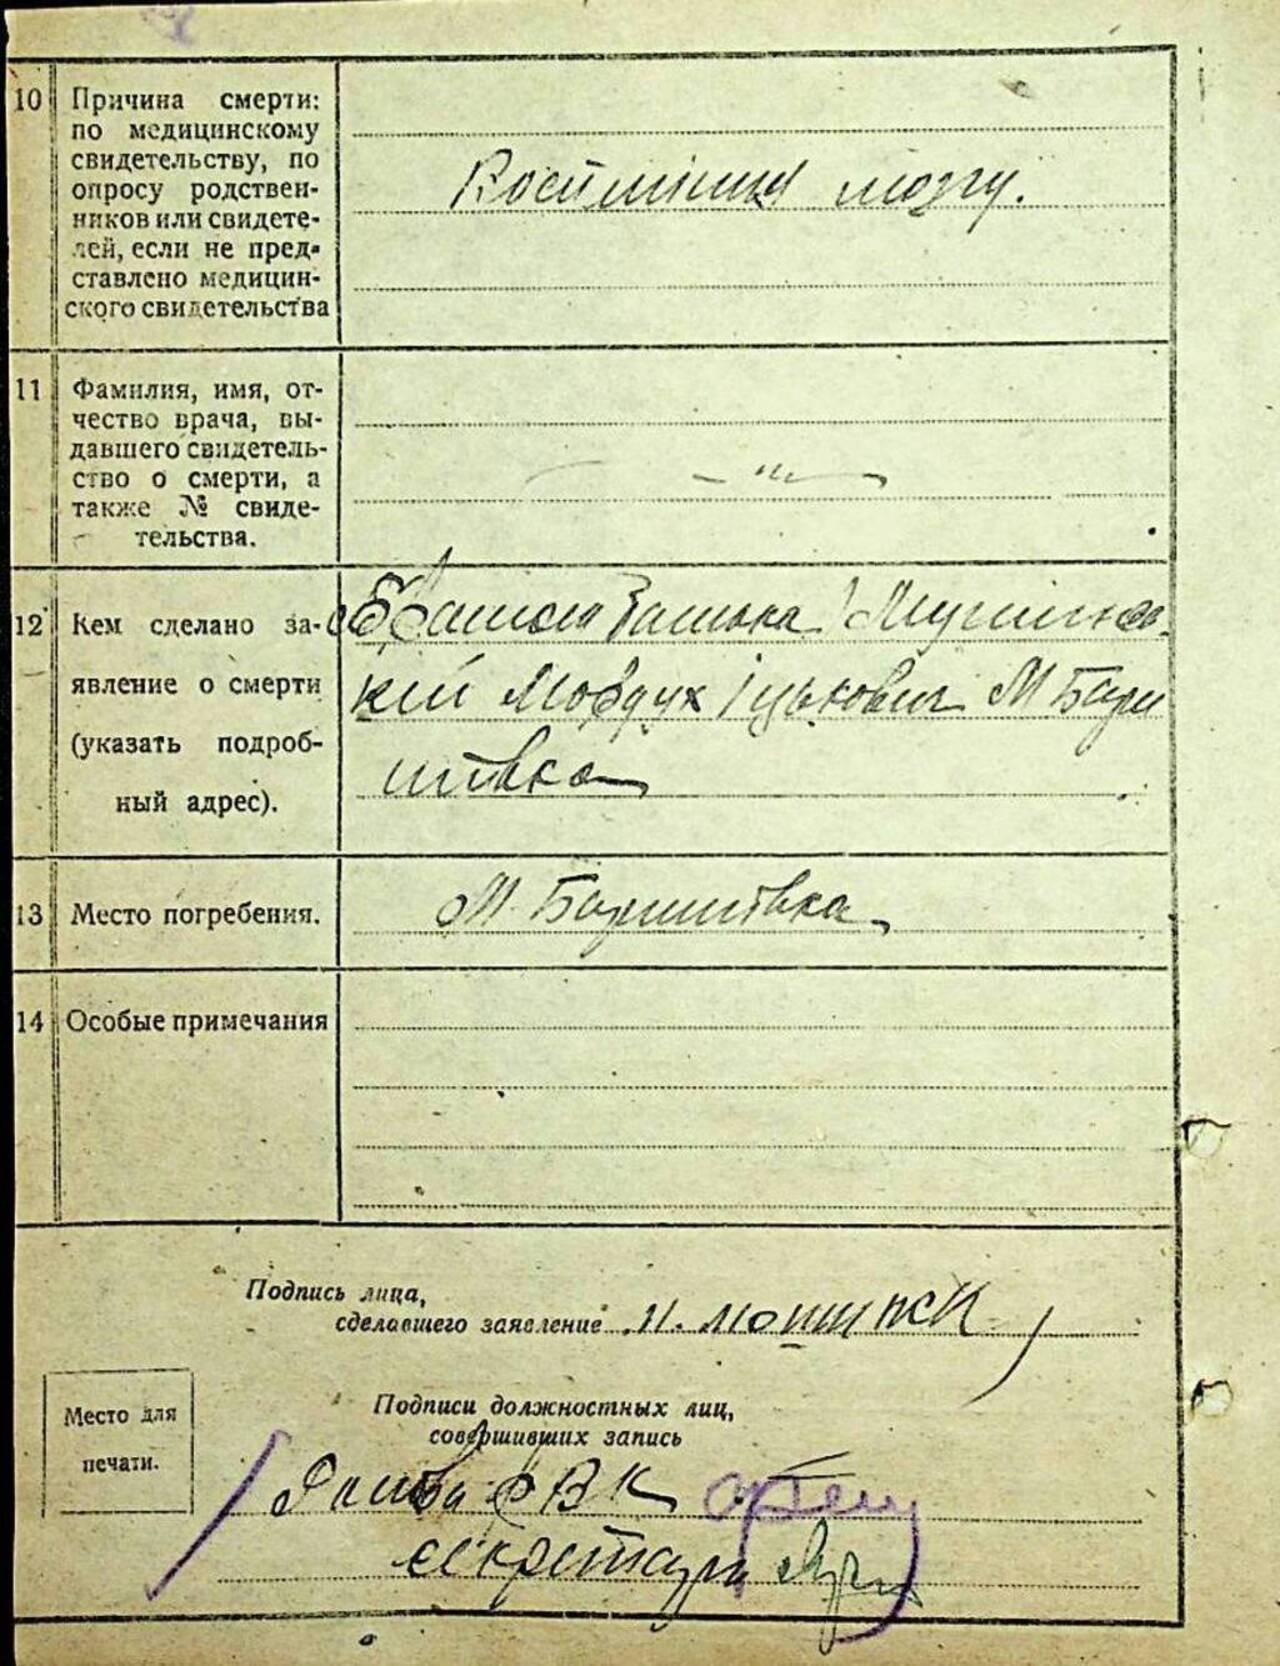 10 Причина смерти:
по медицинскому
свидетельству, по
опросу родствен-
ников или свидете-
лей, если не пред-
ставлено медицин-
ского свидетельства
мозгу.
11 Фамилия, имя, от-
чество врача, вы-
давшего свидетель-
ство о смерти, а
также № свиде-
тельства.
— " —
12 Кем сделано за-
явление о смерти
(указать подроб-
ный адрес).
батька
кий Мордух Іцькович М Бари
шівка
13 Место погребения.
М. Баришівка
14 Особые примечания
Подпись лица,
сделавшего заявление
Подписи должностных лиц,
совершивших запись
Место для
печати.
Голова ФВК
секретарь